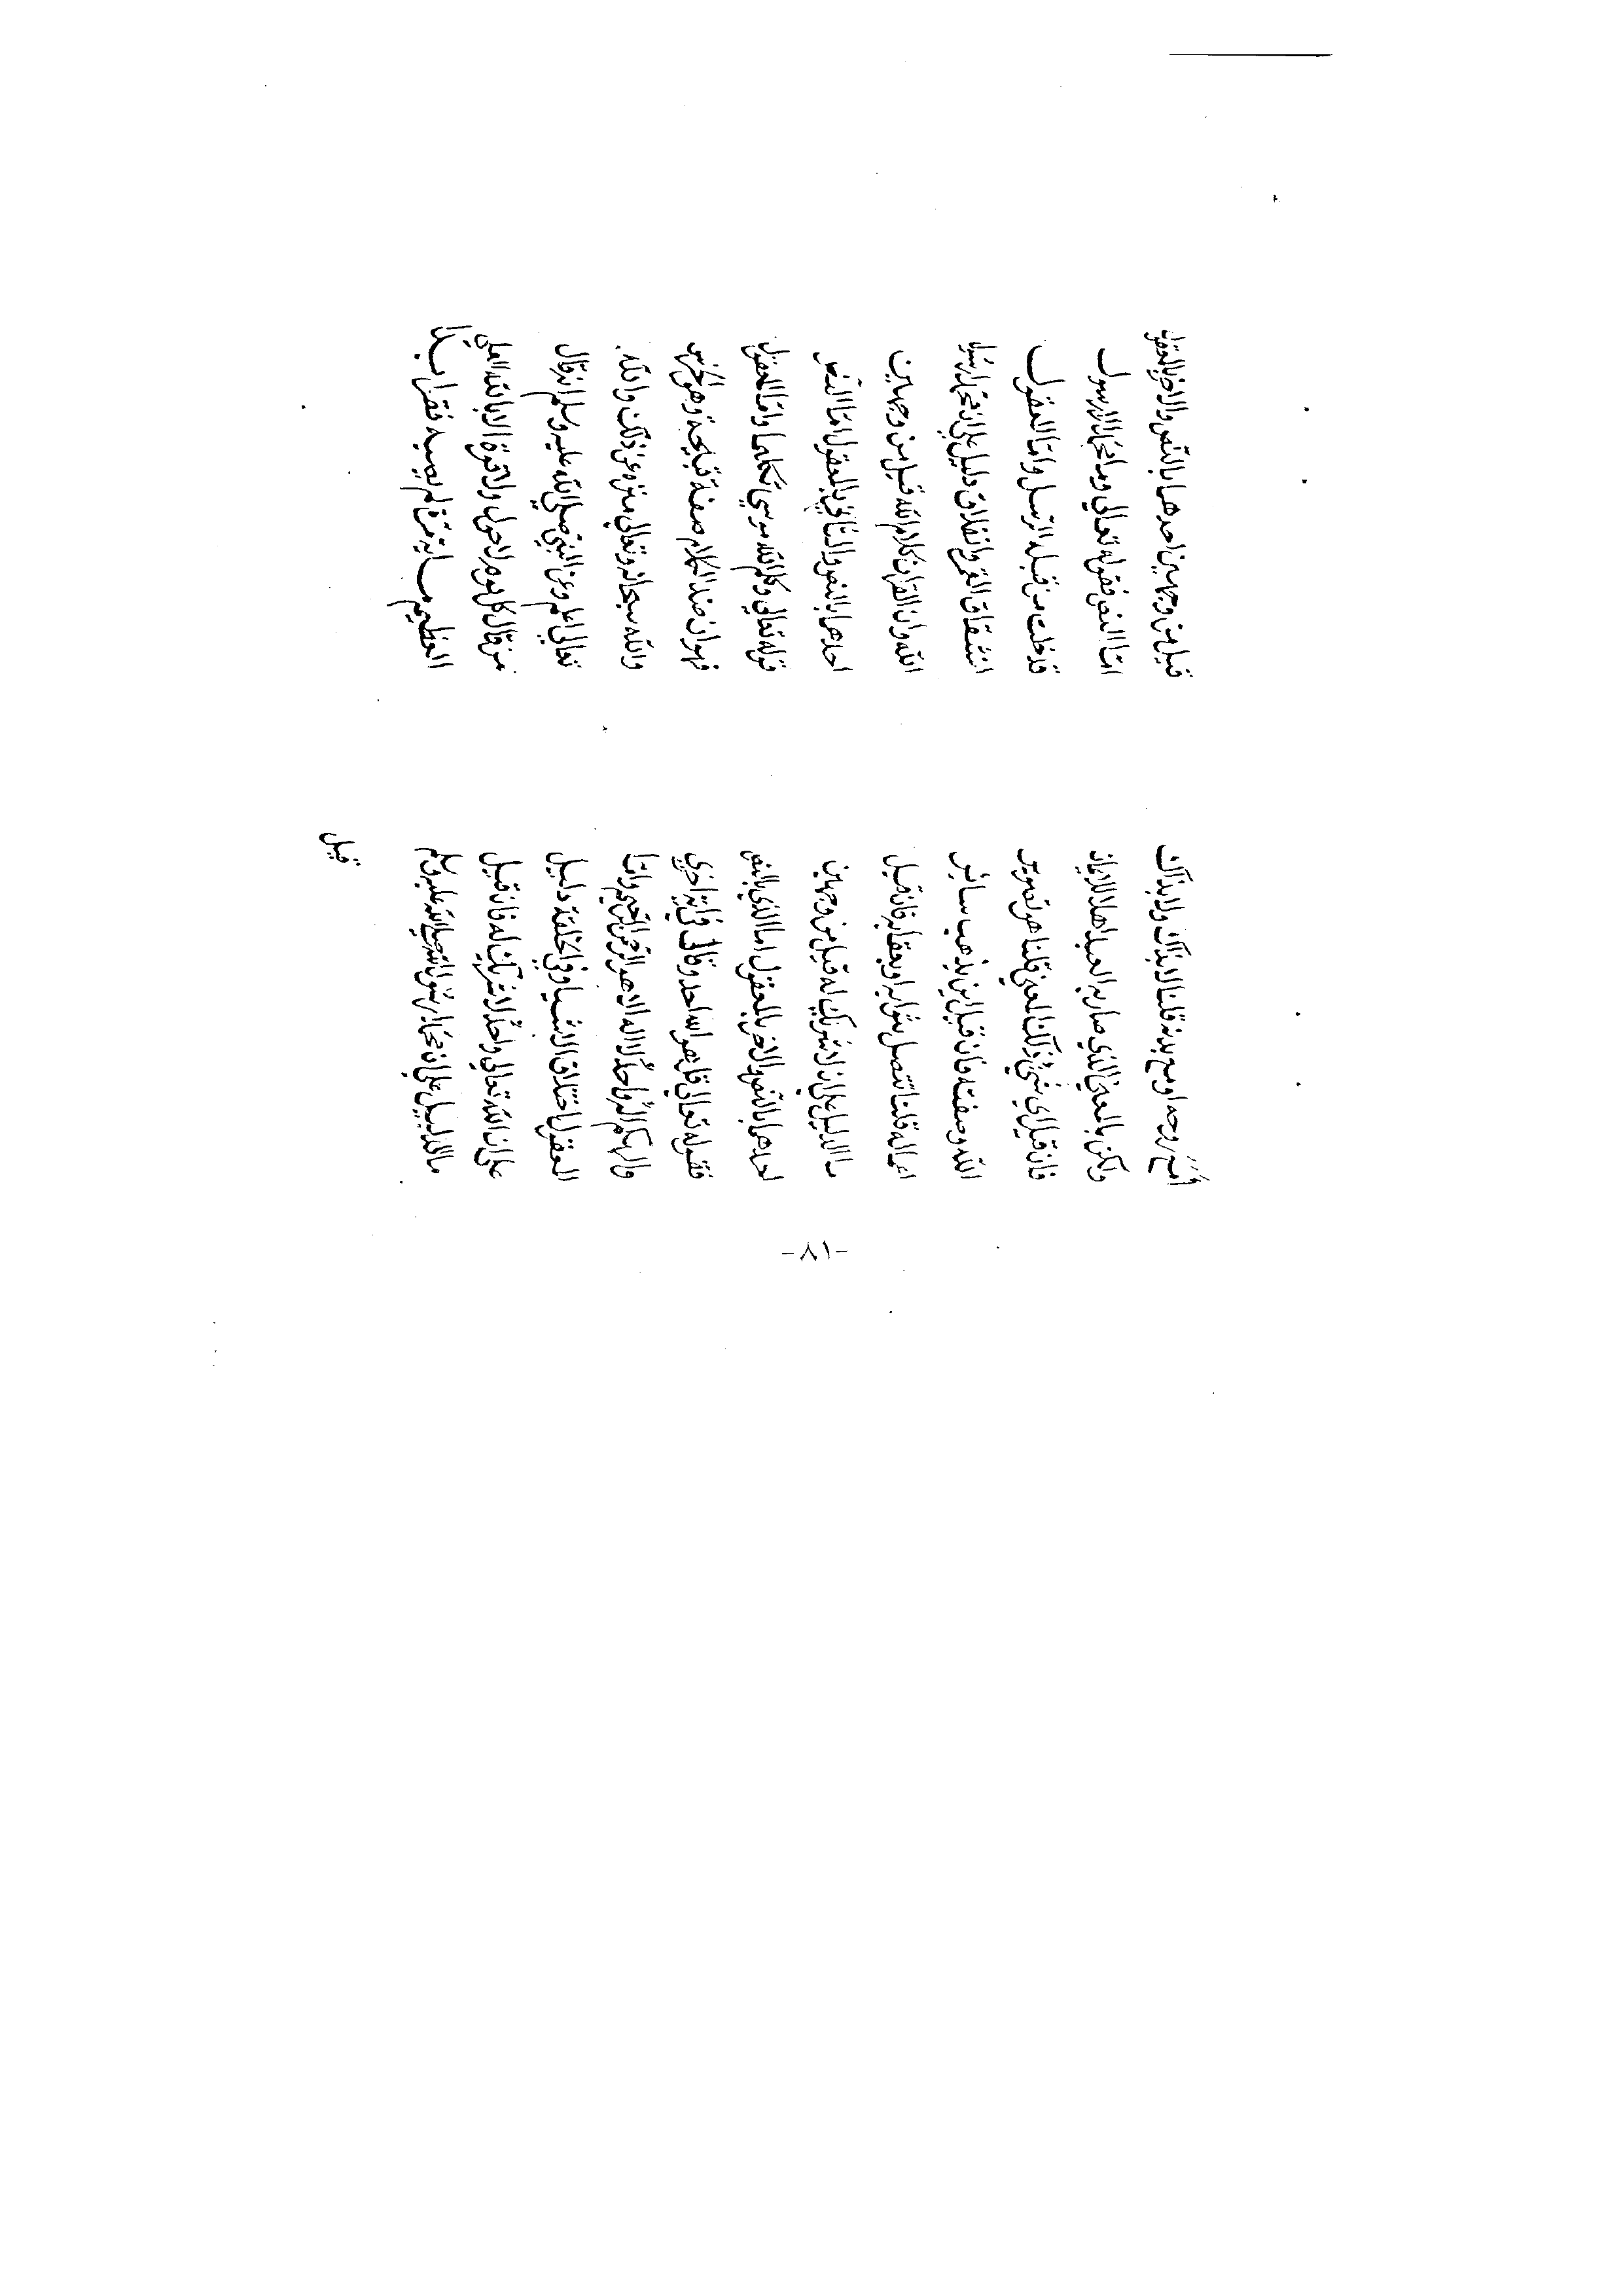 أمع روحه او مع بدنه قلنا لا بذاك ولا بذاك
ولكن بالمعنى الذي صار به العبد اهلا للايمان
فان قيل اي شي ذلك المعنى قلنا هو تصوير
الله وصفته فان قيل اين يذهب سائر
اعماله قلنا تتصل بثوابه او بعقابه فان قيل
ما الدليل على انه لا شريك له قيل من وجهين
احدهما بالنص والاخر بالمعقول اما الذي بالنص
فقوله تعالى قل هو الله احد وقال في اية اخرى
والهكم اله واحد لا اله الا هو الرحمن الرحيم واما
المعقول اختلاق الاشيا وفي الخلقة دليل
على ان الله تعالى واحد لا شريك له فان قيل
ما الدليل على ان محمدا رسول الله صلى الله عليه وسلم
قيل
قيل من وجهين احدهما بالنص والاخر بالمعقول
امّا النص فقوله تعالى وما محمد الا رسول
قد خلت من قبله الرسل وامّا المعقول
انشقاق القمر وانفلاق دليل على ان محمد رسول
الله وان القران كلام الله قيل من وجهين
احدهما بالنص والثاني بالمعقول امّا النص
قوله تعالى وكلم الله موسى تكليما وامّا المعقول
فهو ان ضد الكلام صفة قبيحة وهو الخرس
والله سبحانه وتعالى منزه عن ذلك والله
تعالى اعلم وعن النبي صلى الله عليه وسلم انه قال
من قال كل يوم لا حول ولا قوة الا بالله العلي
العظيم ماية مرة لم يصبه فقر ابدا
-٨١-